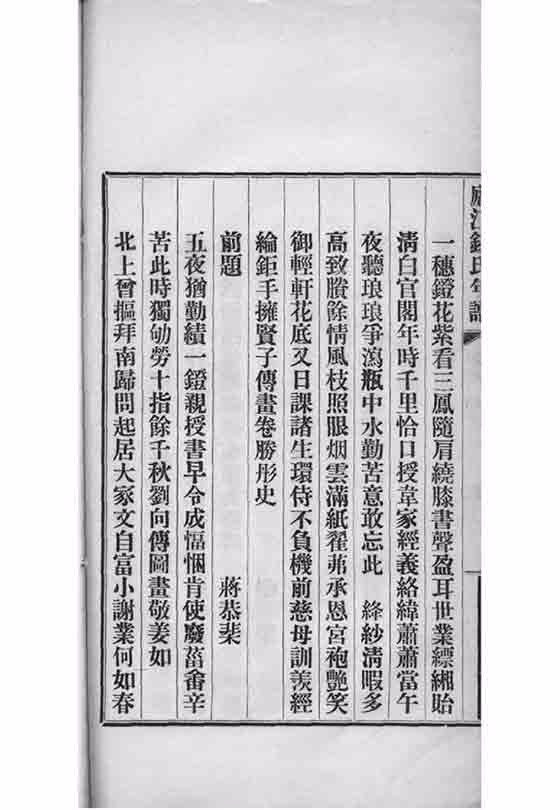 江錢氏年譜
一穗鐙花紫看三鳳隨肩繞膝書聲盈耳世業縹緗貽
清白官閣年時千里恰口授韋家經義絡緯蕭蕭當午
夜聽琅琅爭瀉瓶中水勤苦意敢忘此　絳紗清暇多
高致賸餘情風枝照眼烟雲滿紙翟茀承恩宮袍艷笑
御輕軒花底又日課諸生環侍不負機前慈母訓羨經
綸鉅手擁賢子傳畫卷勝彤史
前題　蔣恭棐
五夜猶勤績一鐙親授書早令成愊悃肯使廢菑畬辛
苦此時獨劬勞十指餘千秋劉向傳圖畫敬姜如
北上曾摳拜南歸問起居大家文自富小謝業何如春